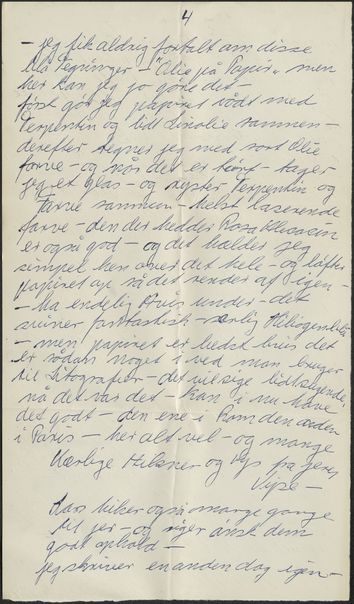 4
- jeg fik aldrig fortalt om disse
blå Tegninger - "Olie på Papir", men
her kan jeg jo gøre det -
først gør jeg papiret vådt med
Terpentin og lidt Linolie sammen -
derefter tegner jeg med sort Olie
farve - og når det er tørt - tager
jeg et glas - og ryster Terpentin og
Farve sammen - helst laserende
farve - den der hedder Rosa
er også god - og det hælder jeg
simpel hen over det hele - og løfter
papiret op så det render af igen -
- Ha endelig Avis under - det
sviner fantastisk - særlig
- men papiret er bedst hvis det
er sådan noget i ved man bruger
til Litografier - det vil sige lidt sugende,
nå det var det - Kan i nu have
det godt - den ene i Rom den anden
i Paris - her alt vel - og mange
Kærlige Hilsner og Kys fra jeres
Vips -
Lars hilser også mange gange
til jer - og siger ønsk dem
godt ophold -
jeg skriver en anden dag igen -